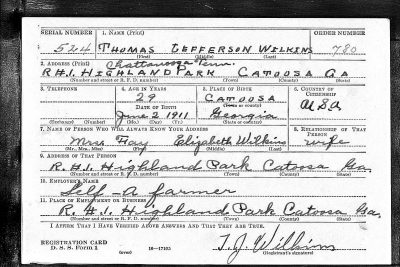 SERIAL NUMBER 1. NAME (Print) ORDER NUMBER
524 THOMAS JEFFERSON WILKINS 780
(First) (Middle) (Last)
2. ADDRESS (Print) Chattanooga Tenn.
R#1. HIGHLAND PARK CATOOSA GA
(Number and street or R. F. D. number) (Town) (County) (State)
3. TELEPHONE 4. AGE IN YEARS 5. PLACE OF BIRTH 6. COUNTRY OF CITIZENSHIP
29 CATOOSA
(Town or county)
DATE OF BIRTH
June 2 1911 Georgia USA
(Exchange) (Number) (Mo.) (Day) (Yr.) (State or country)
7. NAME OF PERSON WHO WILL ALWAYS KNOW YOUR ADDRESS 8. RELATIONSHIP OF THAT PERSON
Mrs. Fay Elizabeth Wilkins wife
(Mr., Mrs., Miss) (First) (Middle) (Last)
9. ADDRESS OF THAT PERSON
R.#1. Highland Park Catoosa Ga.
(Number and street or R. F. D. number) (Town) (County) (State)
10. EMPLOYER'S NAME
Self-A farmer
11. PLACE OF EMPLOYMENT OR BUSINESS
R.#1. Highland Park Catoosa Ga.
(Number and street or R. F. D. number) (Town) (County) (State)
I AFFIRM THAT I HAVE VERIFIED ABOVE ANSWERS AND THAT THEY ARE TRUE.
REGISTRATION CARD
D. S. S. Form 1 16—17105 T. J. Wilkins
(Registrant's signature)